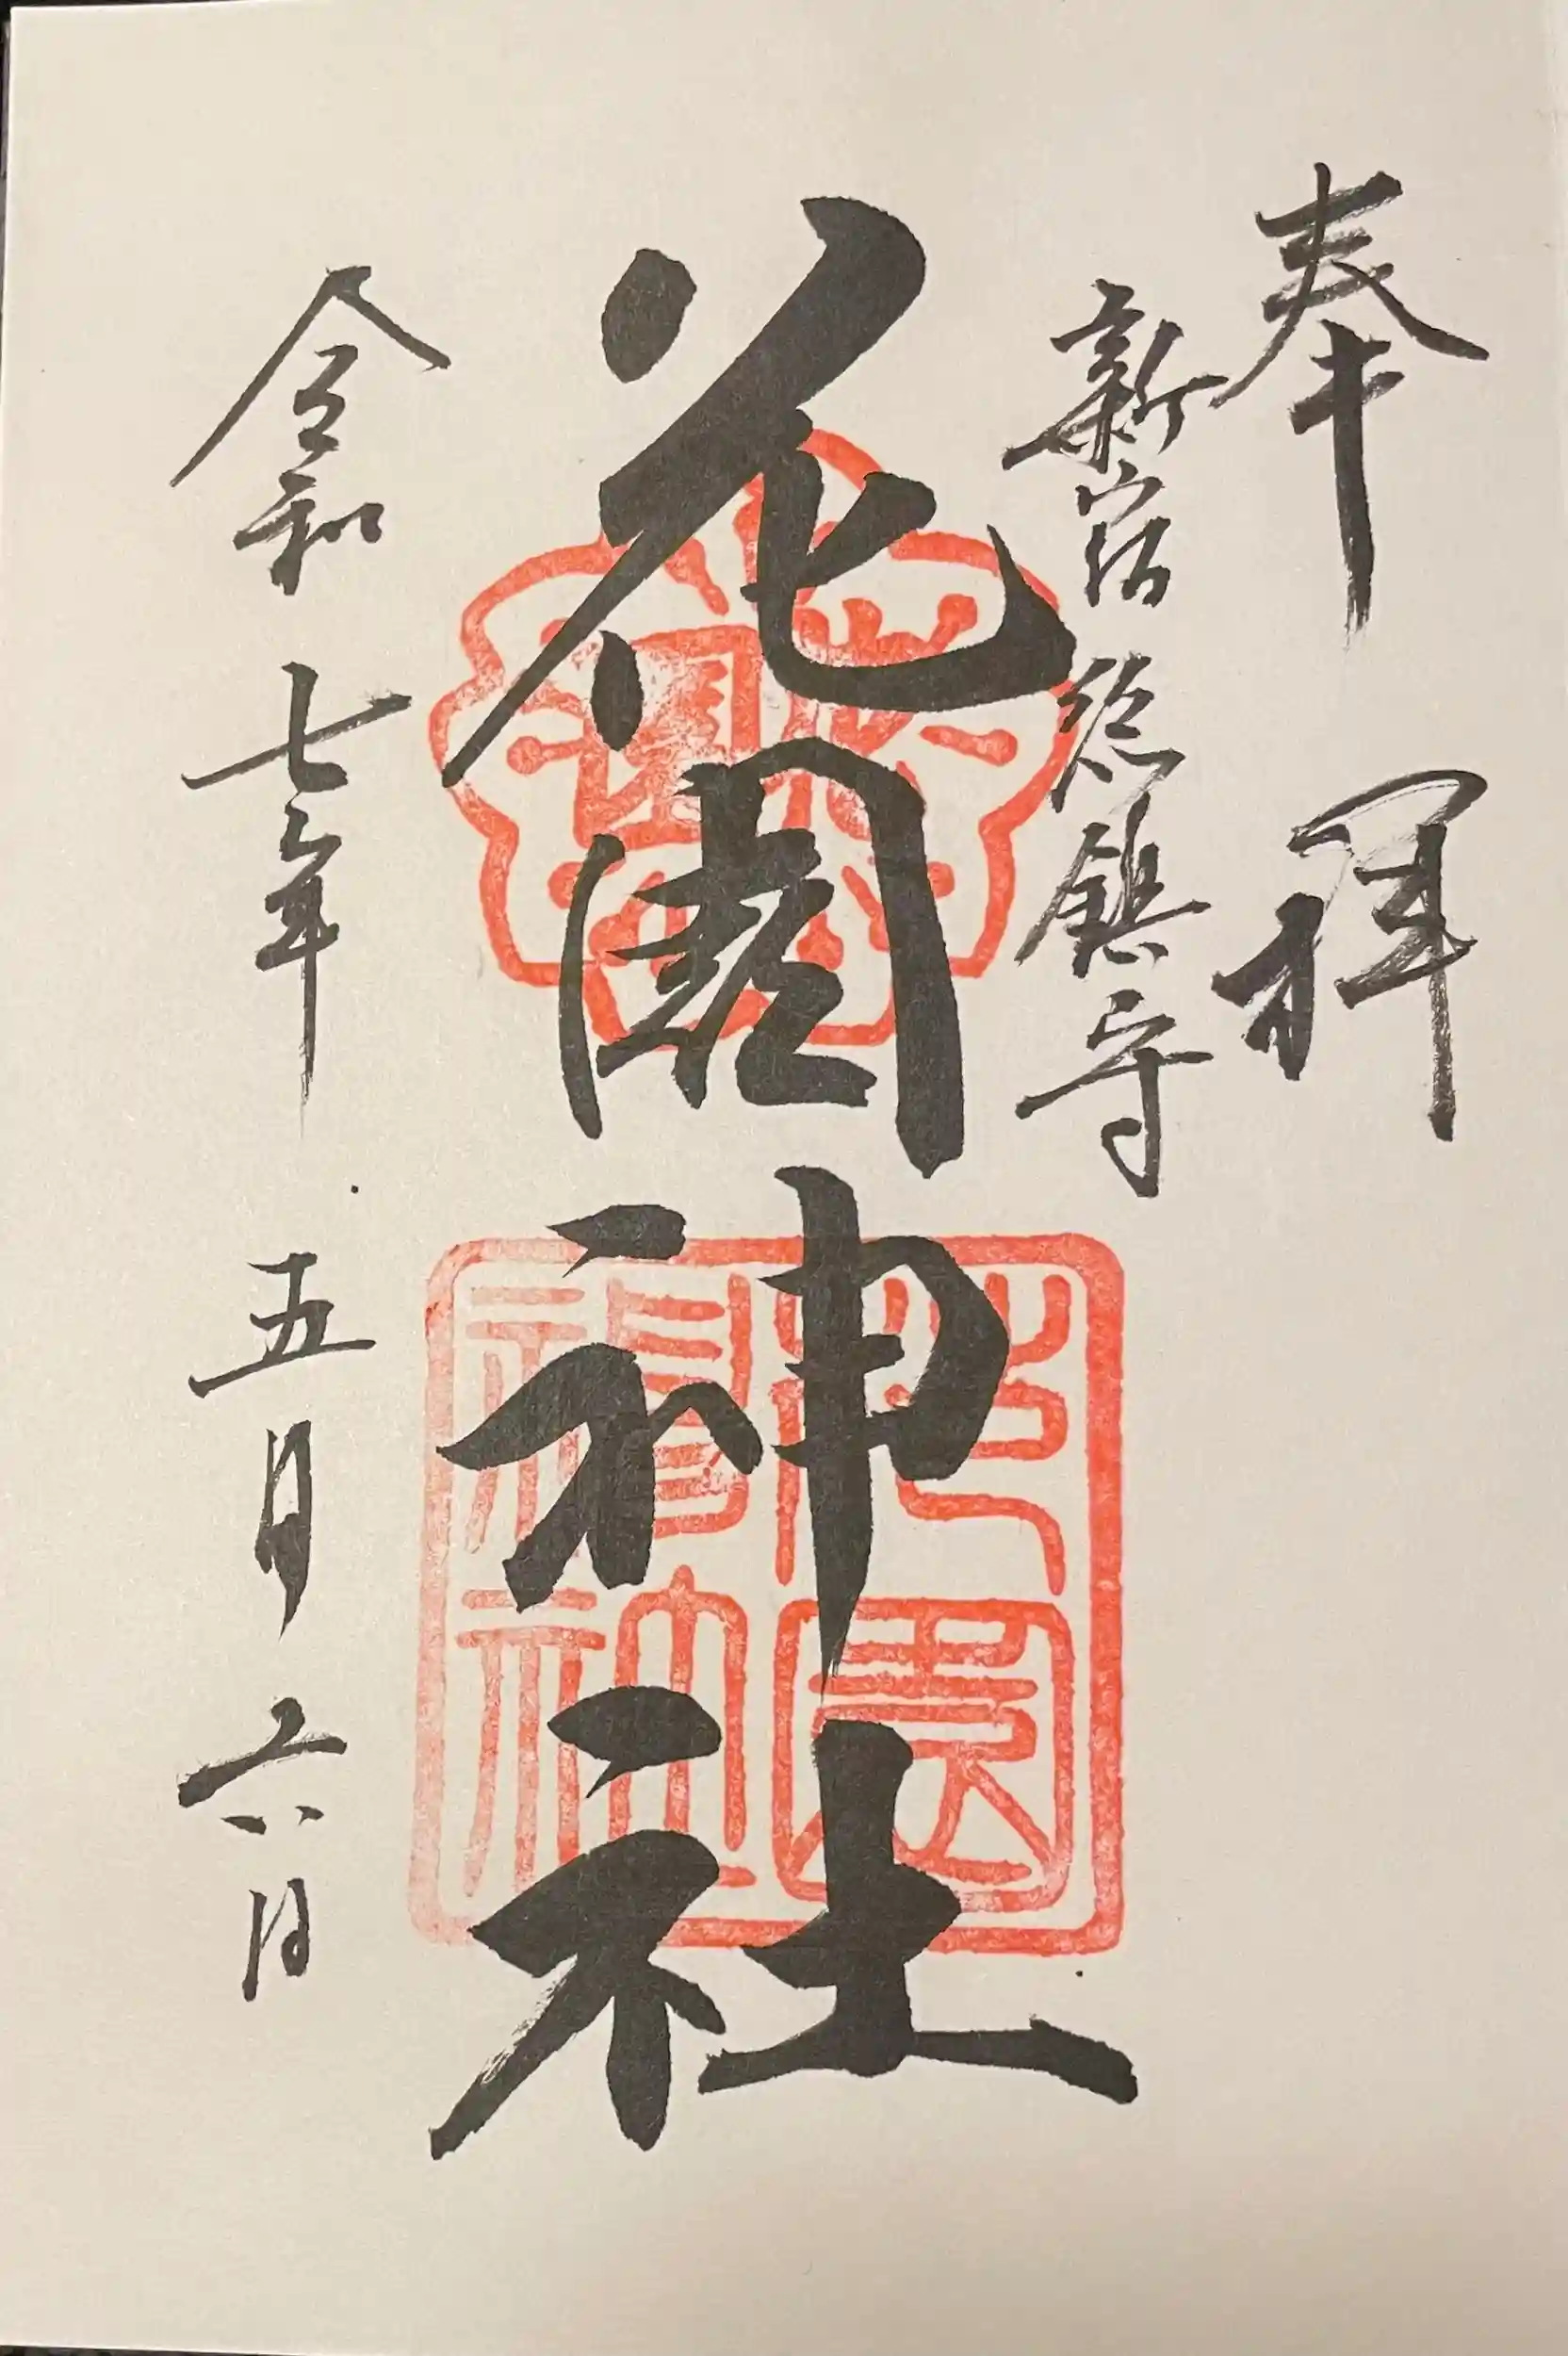 奉拝
新宿総鎮守
花園神社
令和七年五月六日
花園
花園神社